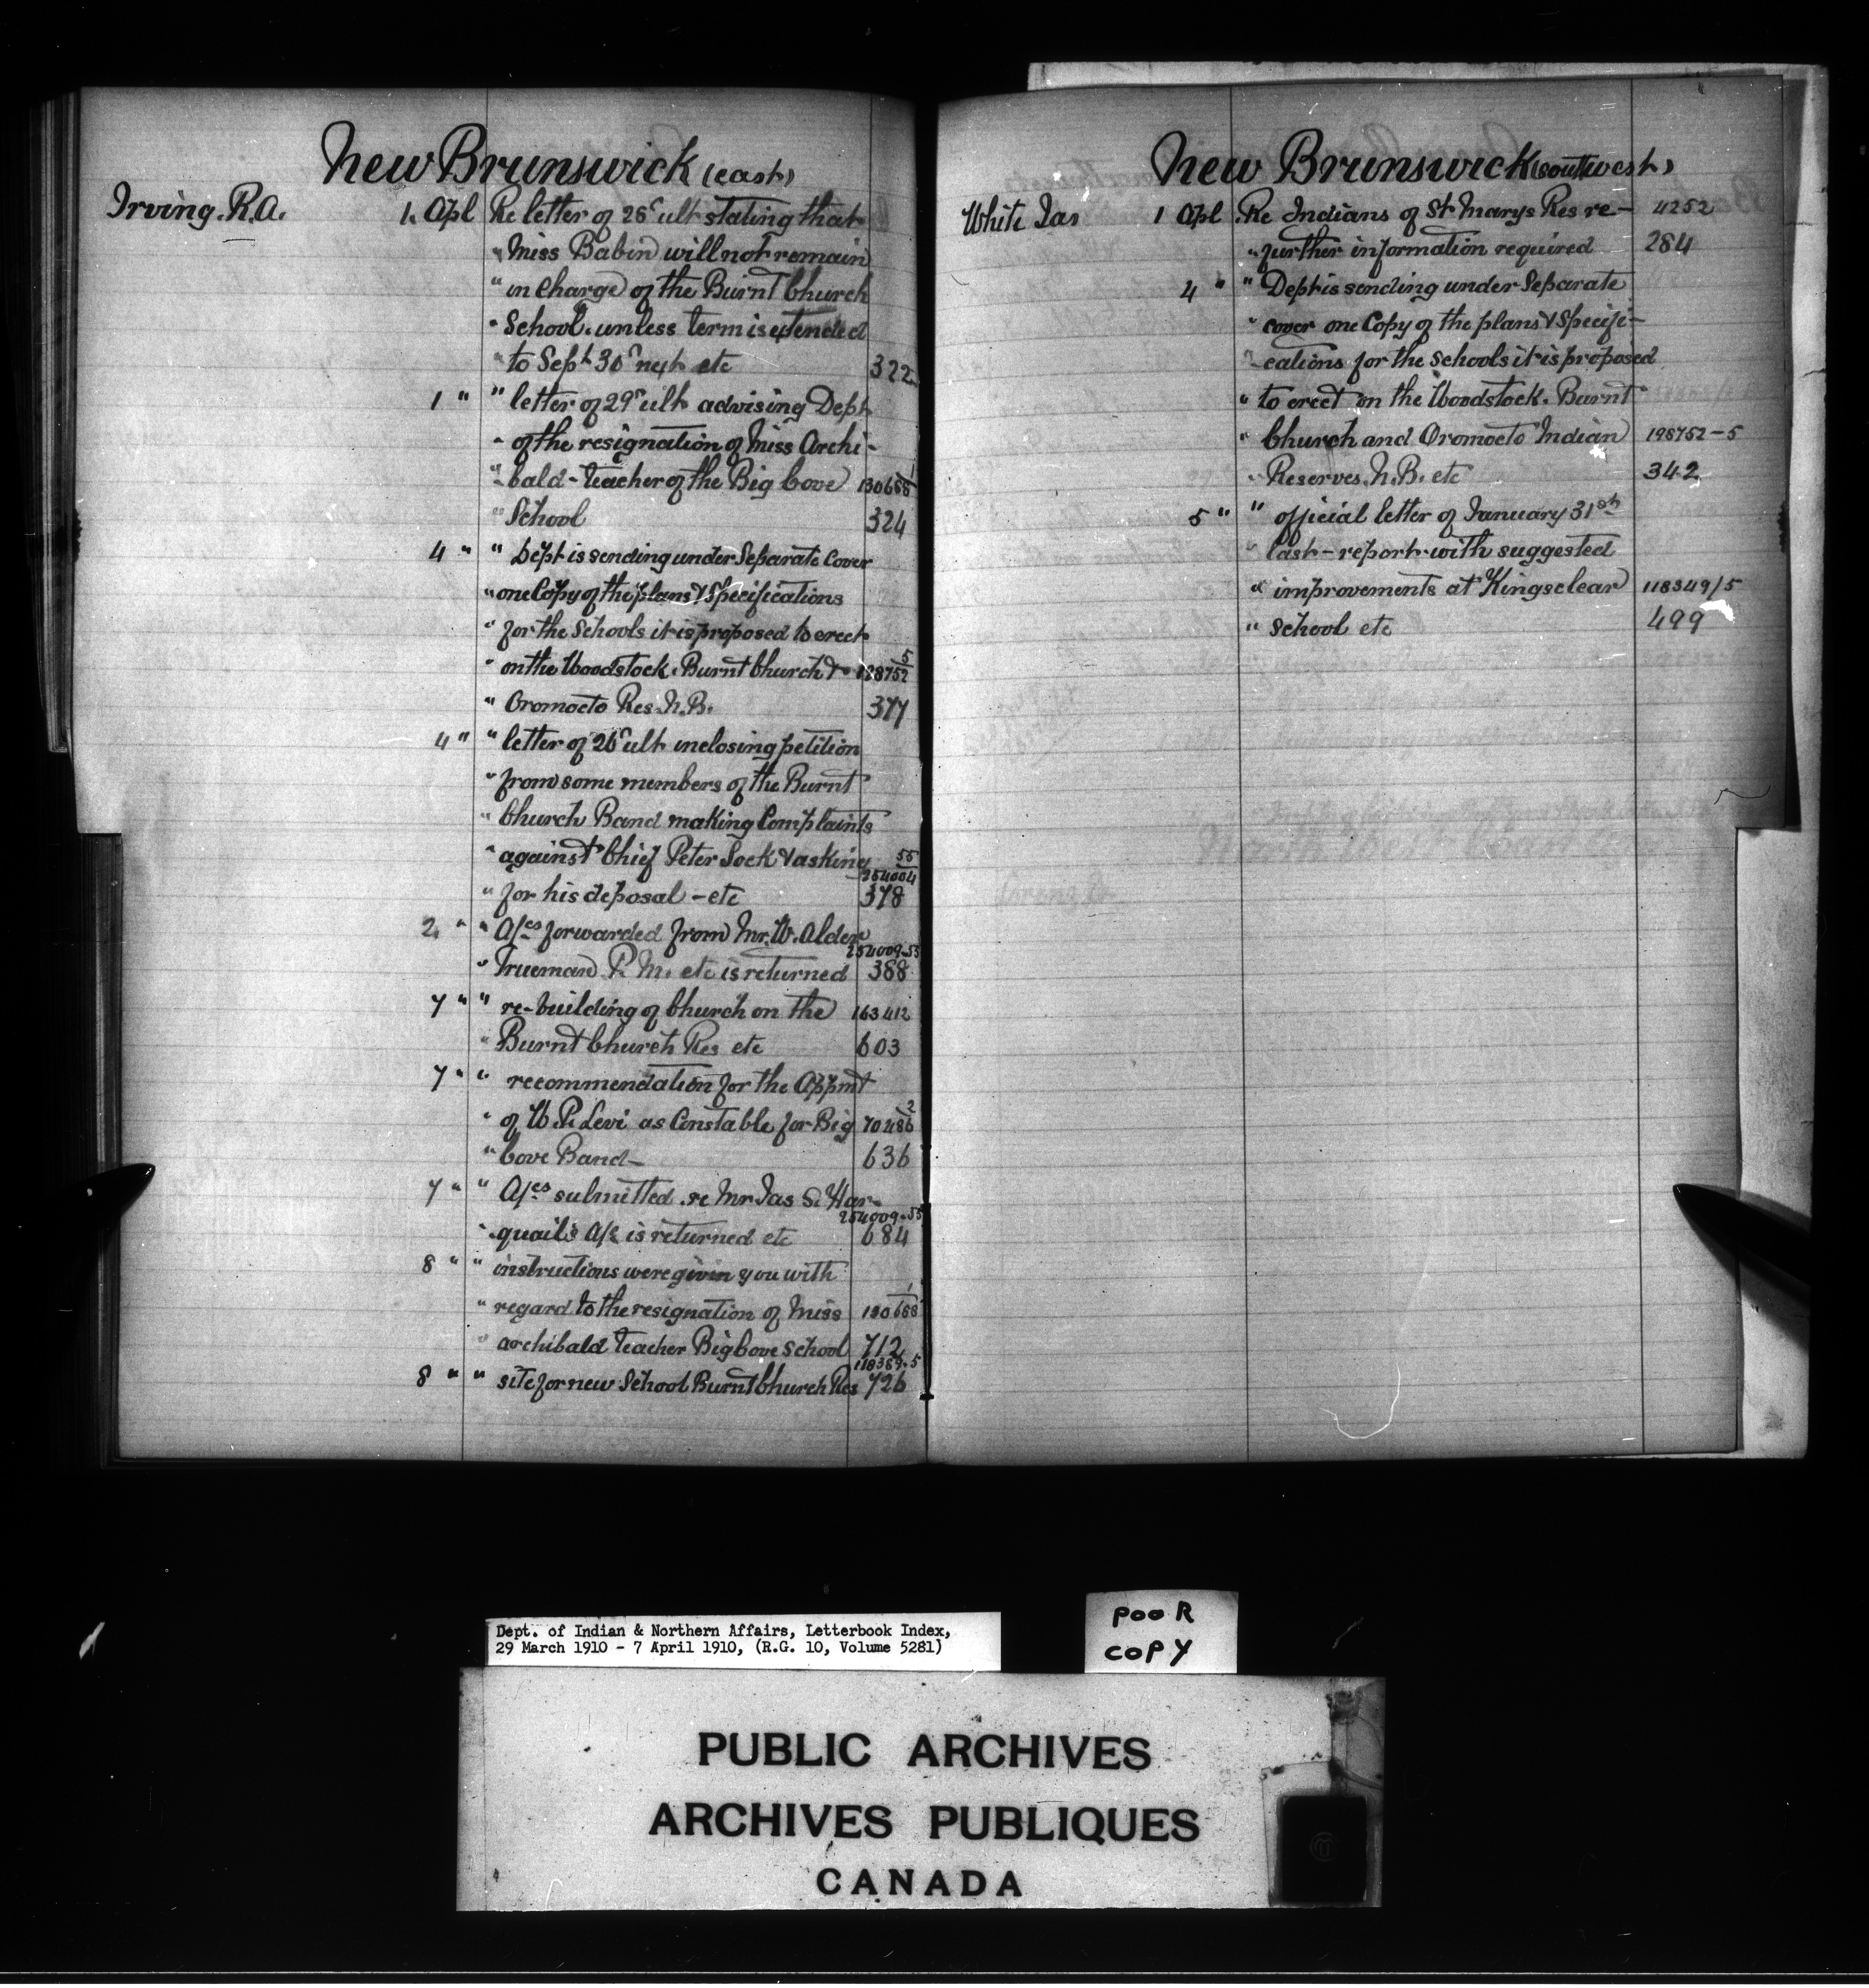 New Brunswick (east)
Irving. R.A. 1. Apl Re letter of 26" ult stating that
" Miss Babin will not remain
" in charge of the Burnt Church
" School. unless term is extended
" to Sept 30" next etc 322
1 " " letter of 29" ult advising Dept
" of the resignation of Miss Archi-
" bald - teacher of the Big Cove 130655/1
" School 324
4 " " Dept is sending under Separate Cover
" one Copy of the plans & Specifications
" for the Schools it is proposed to erect
" on the Woodstock. Burnt Church & 198752/5
" Oromocto Res. N.B. 377
4 " " letter of 26" ult inclosing petition
" from some members of the Burnt
" Church Band making Complaints
" against Chief Peter Sock & asking 55
" for his deposal - etc 378
2 " " A/cs forwarded from Mr. W. Alder 254009-55
" Trueman P. M. etc is returned 388
7 " " re-building of Church on the 163412
" Burnt Church Res etc 603
7 " " recommendation for the Appmt
" of W. P. Levi as Constable for Big 70486/2
" Cove Band - 636
7 " " A/cs submitted re Mr Jas S. Har- 254009-55
" quail's A/c is returned etc 684
8 " " instructions were given you with
" regard to the resignation of Miss 130658/1
" archibald teacher Big Cove School 712
8 " " site for new School Burnt Church Res 118389-5 726
New Brunswick (southwest)
White Jas 1 Apl Re Indians of St Marys Res re- 4252
" further information required 284
4 " " Dept is sending under Separate
" cover one Copy of the plans & Specifi-
" cations for the schools it is proposed
" to erect on the Woodstock. Burnt
" Church and Oromocto Indian 198752-5
" Reserves. N.B. etc 342
5 " " official letter of January 31st
" last - report with suggested
" improvements at Kingsclear 118349/5
" School etc 499
Dept. of Indian & Northern Affairs, Letterbook Index,
29 March 1910 - 7 April 1910, (R.G. 10, Volume 5281)
POOR
COPY
PUBLIC ARCHIVES
ARCHIVES PUBLIQUES
CANADA